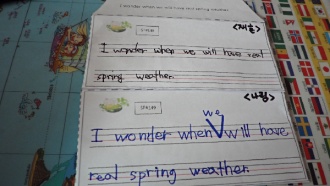 I wonder when we will have real spring weather.
I wonder when we will have real
spring weather.
we
I wonder when will have
real spring weather.